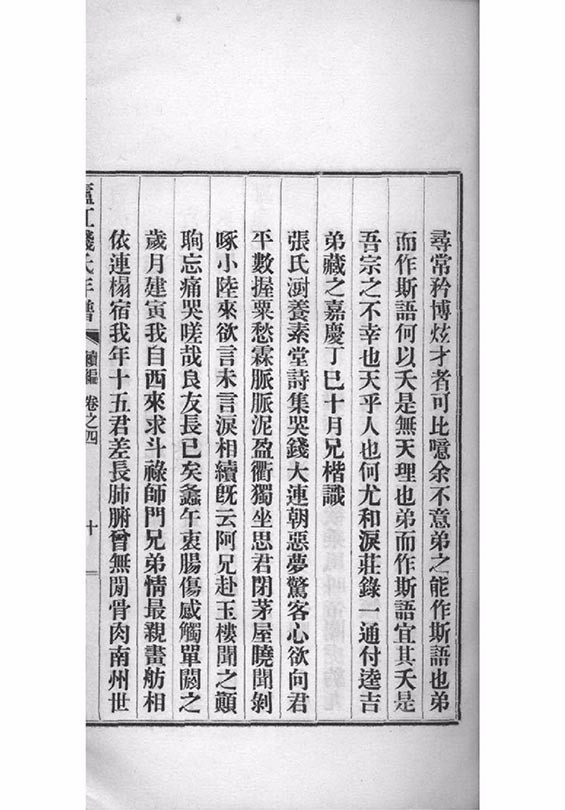 尋常矜博炫才者可比噫余不意弟之能作斯語也弟
而作斯語何以夭是無天理也弟而作斯語宜其夭是
吾宗之不幸也天乎人也何尤和淚莊錄一通付逵吉
弟藏之嘉慶丁巳十月兄楷識
張氏澍養素堂詩集哭錢大連朝惡夢驚客心欲向君
平數握粟愁霖脈脈泥盈衢獨坐思君閉茅屋曉聞剝
啄小陸來欲言未言淚相續旣云阿兄赴玉樓聞之顚
眴忘痛哭嗟哉良友長已矣螽午衷腸傷感觸單閼之
歲月建寅我自西來求斗祿師門兄弟情最親畫舫相
依連榻宿我年十五君差長肺腑曾無閒骨肉南州世
廬江錢氏年譜 續編 卷之四 十